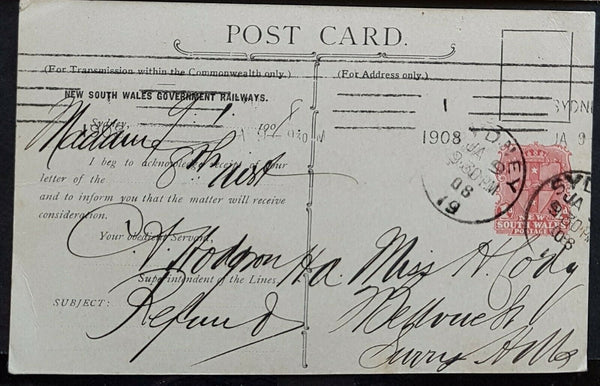 POST CARD.
(For Transmission within the Commonwealth only.)
NEW SOUTH WALES GOVERNMENT RAILWAYS.
Sydney, 190 8
Madam
I beg to acknowledge receipt of your
letter of the inst
and to inform you that the matter will receive
consideration.
Your obedient Servant,
Hodgson
Superintendent of the Lines.
SUBJECT:
Refund
(For Address only.)
1
1908
SYDNEY
JA 9
9 30 PM
08
19
SYDNE
JA 9
SYD
JA
9 30 P
08
NEW
SOUTH WALES
POSTAGE
Miss A. Cody
St
Surry Hills